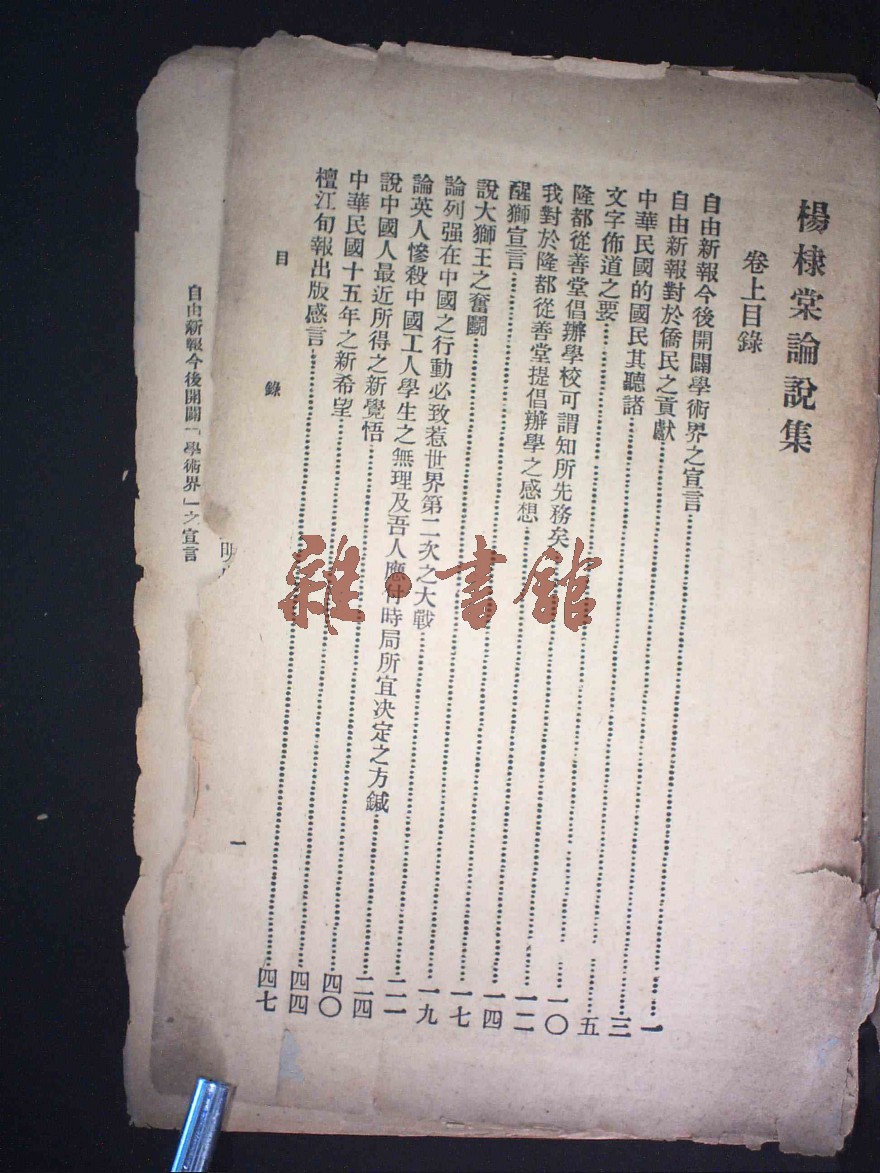 楊棣棠論說集
卷上目錄
自由新報今後開闢學術界之宣言……一
自由新報對於僑民之貢獻……三
中華民國的國民其聽諸……五
文字佈道之要……一〇
隆都從善堂倡辦學校可謂知所先務矣……一二
我對於隆都從善堂提倡辦學之感想……一四
醒獅宣言……一七
說大獅王之奮鬭……一九
論列强在中國之行動必致惹世界第二次之大戰……二一
論英人慘殺中國工人學生之無理及吾人應付時局所宜决定之方鍼……二四
說中國人最近所得之新覺悟……四〇
中華民國十五年之新希望……四四
檀江旬報出版感言……四七
目錄
一
自由新報今後開闢「學術界」之宣言
雜·書館